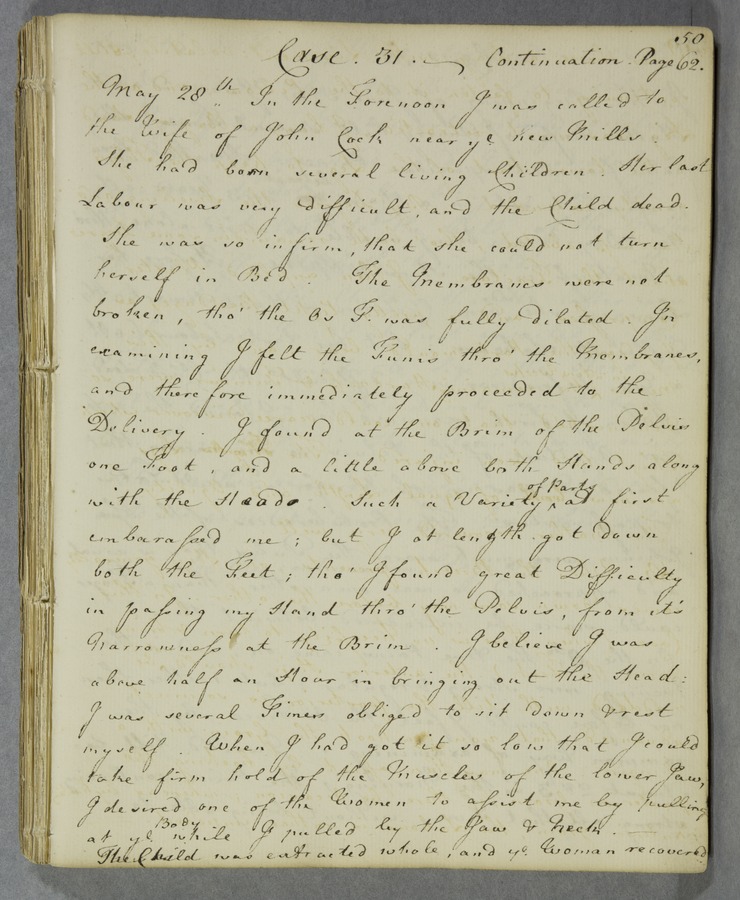 50
Case . 31 . Continuation . Page 62.
May 28th In the Forenoon I was called to
the Wife of John Cock near ye new Mills .
She had born several living Children . Her last
Labour was very difficult, and the Child dead .
She was so infirm, that she could not turn
herself in Bed . The Membranes were not
broken, tho' the Os T. was fully dilated . In
examining I felt the Funis thro' the Membranes,
and therefore immediately proceeded to the
Delivery . I found at the Brim of the Pelvis
one Foot, and a little above both Hands along
with the Head . Such a Variety ^of Parts at first
embarassed me ; but I at length got down
both the Feet ; tho' I found great Difficulty
in passing my Hand thro' the Pelvis, from it's
Narrowness at the Brim . I believe I was
above half an Hour in bringing out the Head :
I was several Times obliged to sit down & rest
myself . When I had got it so low that I could
take firm hold of the Muscles of the lower Jaw,
I desired one of the Women to assist me by pulling
at ye Body while I pulled by the Jaw & Neck .
The Child was extracted whole, and ye Woman recovered.